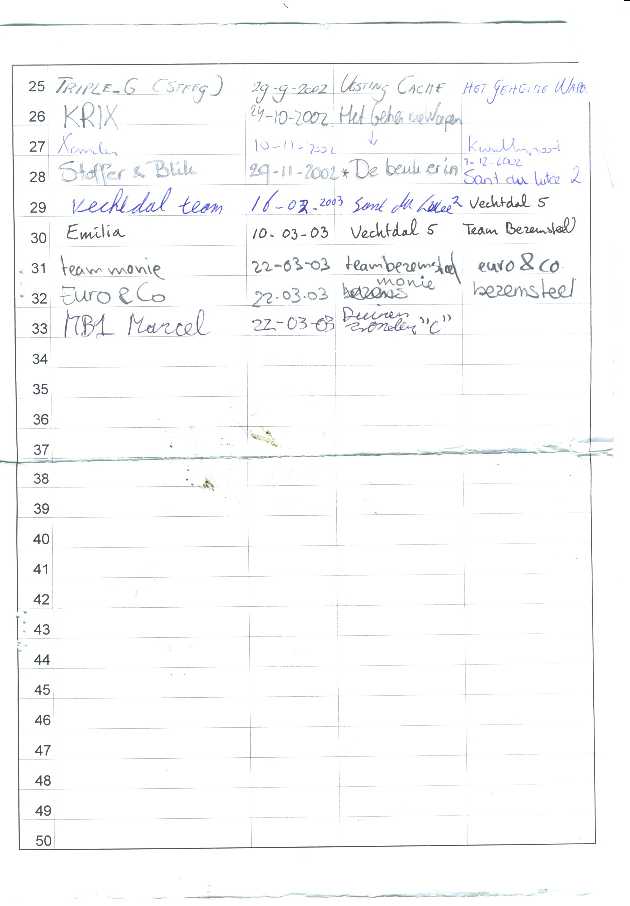 25 TRIPLE_G (STEEG) 29-9-2002 CACHE HET GEHEIME
26 KRIX 24-10-2002 Het Geheime Wapen
27 10-11-2002
28 Stoffer & Blik 29-11-2002 * De beuk erin 7-12-2002 Sant du luke 2
29 Vechtdal team 16-02-2003 Sant du 2 Vechtdal 5
30 Emilia 10-03-03 Vechtdal 5 Team Bezemsteel
31 team monie 22-03-03 team bezemsteel euro & co
32 Euro & Co 22-03-03 monie bezemsteel
33 MB1 Marcel 22-03-03 "C"
34
35
36
37
38
39
40
41
42
43
44
45
46
47
48
49
50